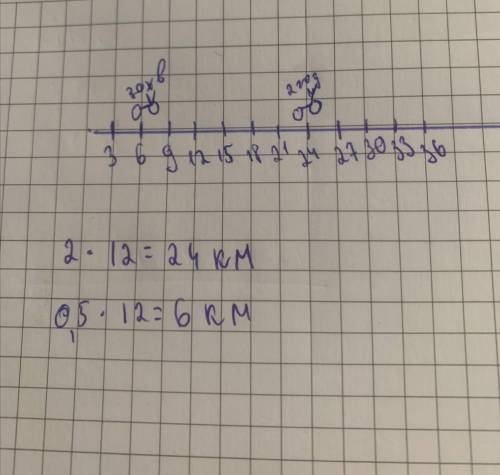 30хв 2год
3 6 9 12 15 18 21 24 27 30 33 36
2 · 12 = 24 км
0,5 · 12 = 6 км